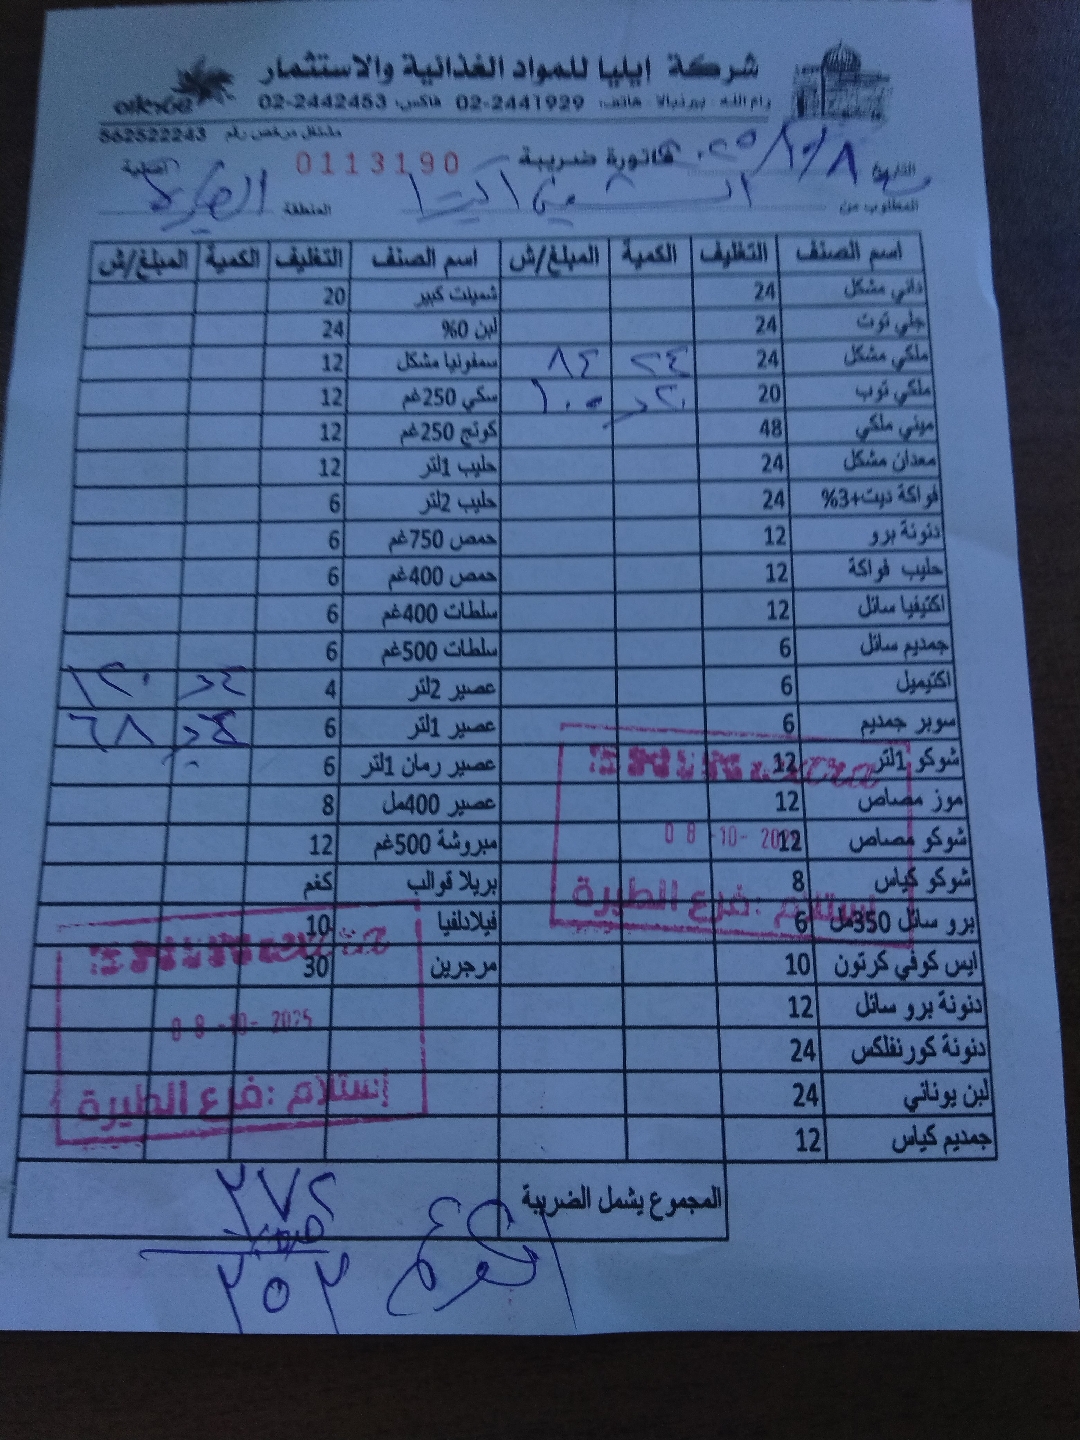 شركة ايليا للمواد الغذائية والاستثمار
رام الله - بيرنبالا - هاتف: 02-2441929 فاكس: 02-2442453
مشتغل مرخص رقم 562522243
التاريخ ٢٠٢٥/١٠/٨ فاتورة ضريبة 0113190 أصلية
المطلوب من المنطقة الطيرة
اسم الصنف التغليف الكمية المبلغ/ش اسم الصنف التغليف الكمية المبلغ/ش
داني مشكل 24 شمينت كبير 20
جلي توت 24 لبن 0% 24
ملكي مشكل 24 ٢٤ ٨٤ سمفونيا مشكل 12
ملكي توب 20 ٢٠ ١٠٠ سكي 250غم 12
ميني ملكي 48 كوتج 250غم 12
معدان مشكل 24 حليب 1لتر 12
فواكة ديت+3% 24 حليب 2لتر 6
دنونة برو 12 حمص 750غم 6
حليب فواكة 12 حمص 400غم 6
اكتيفيا سائل 12 سلطات 400غم 6
جمديم سائل 6 سلطات 500غم 6
اكتيميل 6 عصير 2لتر 4
سوبر جمديم 6 عصير 1لتر 6 ٦٨
شوكو 1لتر 12 عصير رمان 1لتر 6
موز مصاص 12 عصير 400مل 8
شوكو مصاص 12 مبروشة 500غم 12
شوكو كياس 8 بريلا قوالب كغم
برو سائل 350مل 6 فيلادلفيا 10
ايس كوفي كرتون 10 مرجرين 30
دنونة برو سائل 12
دنونة كورنفلكس 24
لبن يوناني 24
جمديم كياس 12
08-10-202
إستلام :فرع الطيرة
08-10-2025
إستلام :فرع الطيرة
المجموع يشمل الضريبة ٢٧٢
٢٥٢